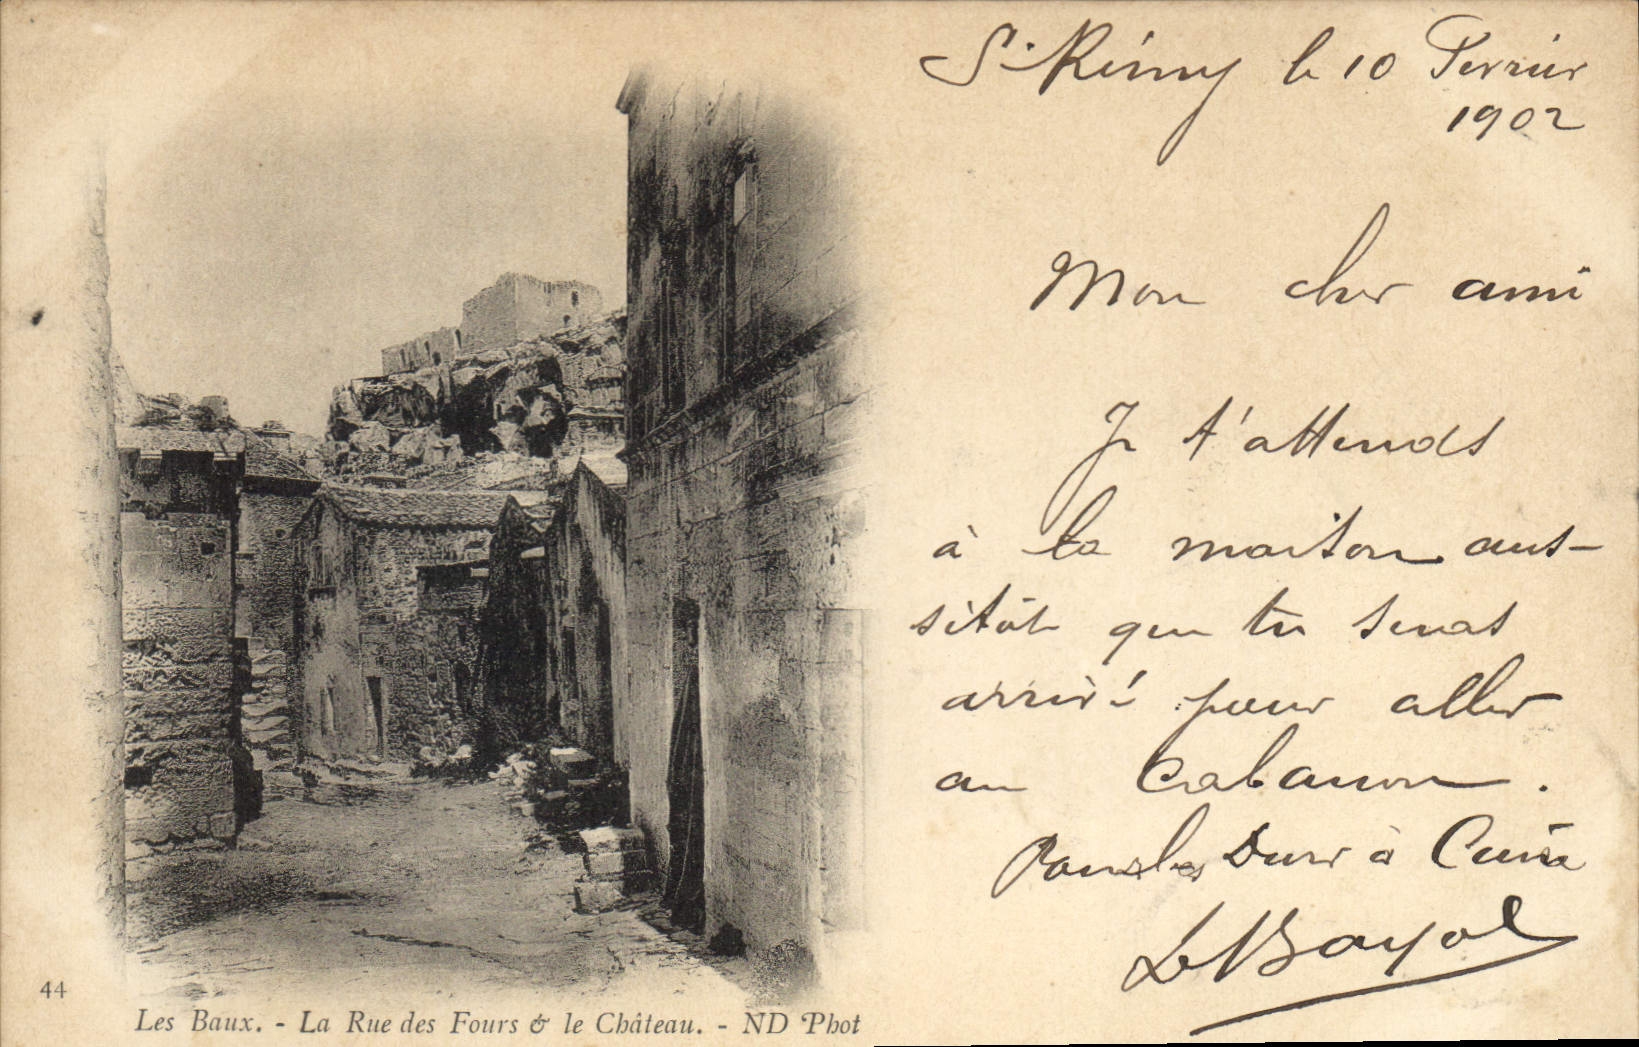 St Rémy le 10 Fevrier
1902
Mon cher ami
Je t'attends
à la maison aus-
sitôt que tu seras
arrivé pour aller
au Cabanon.
Pour les Durs à Cuire
Bayol
44
Les Baux. - La Rue des Fours & le Château. - ND Phot